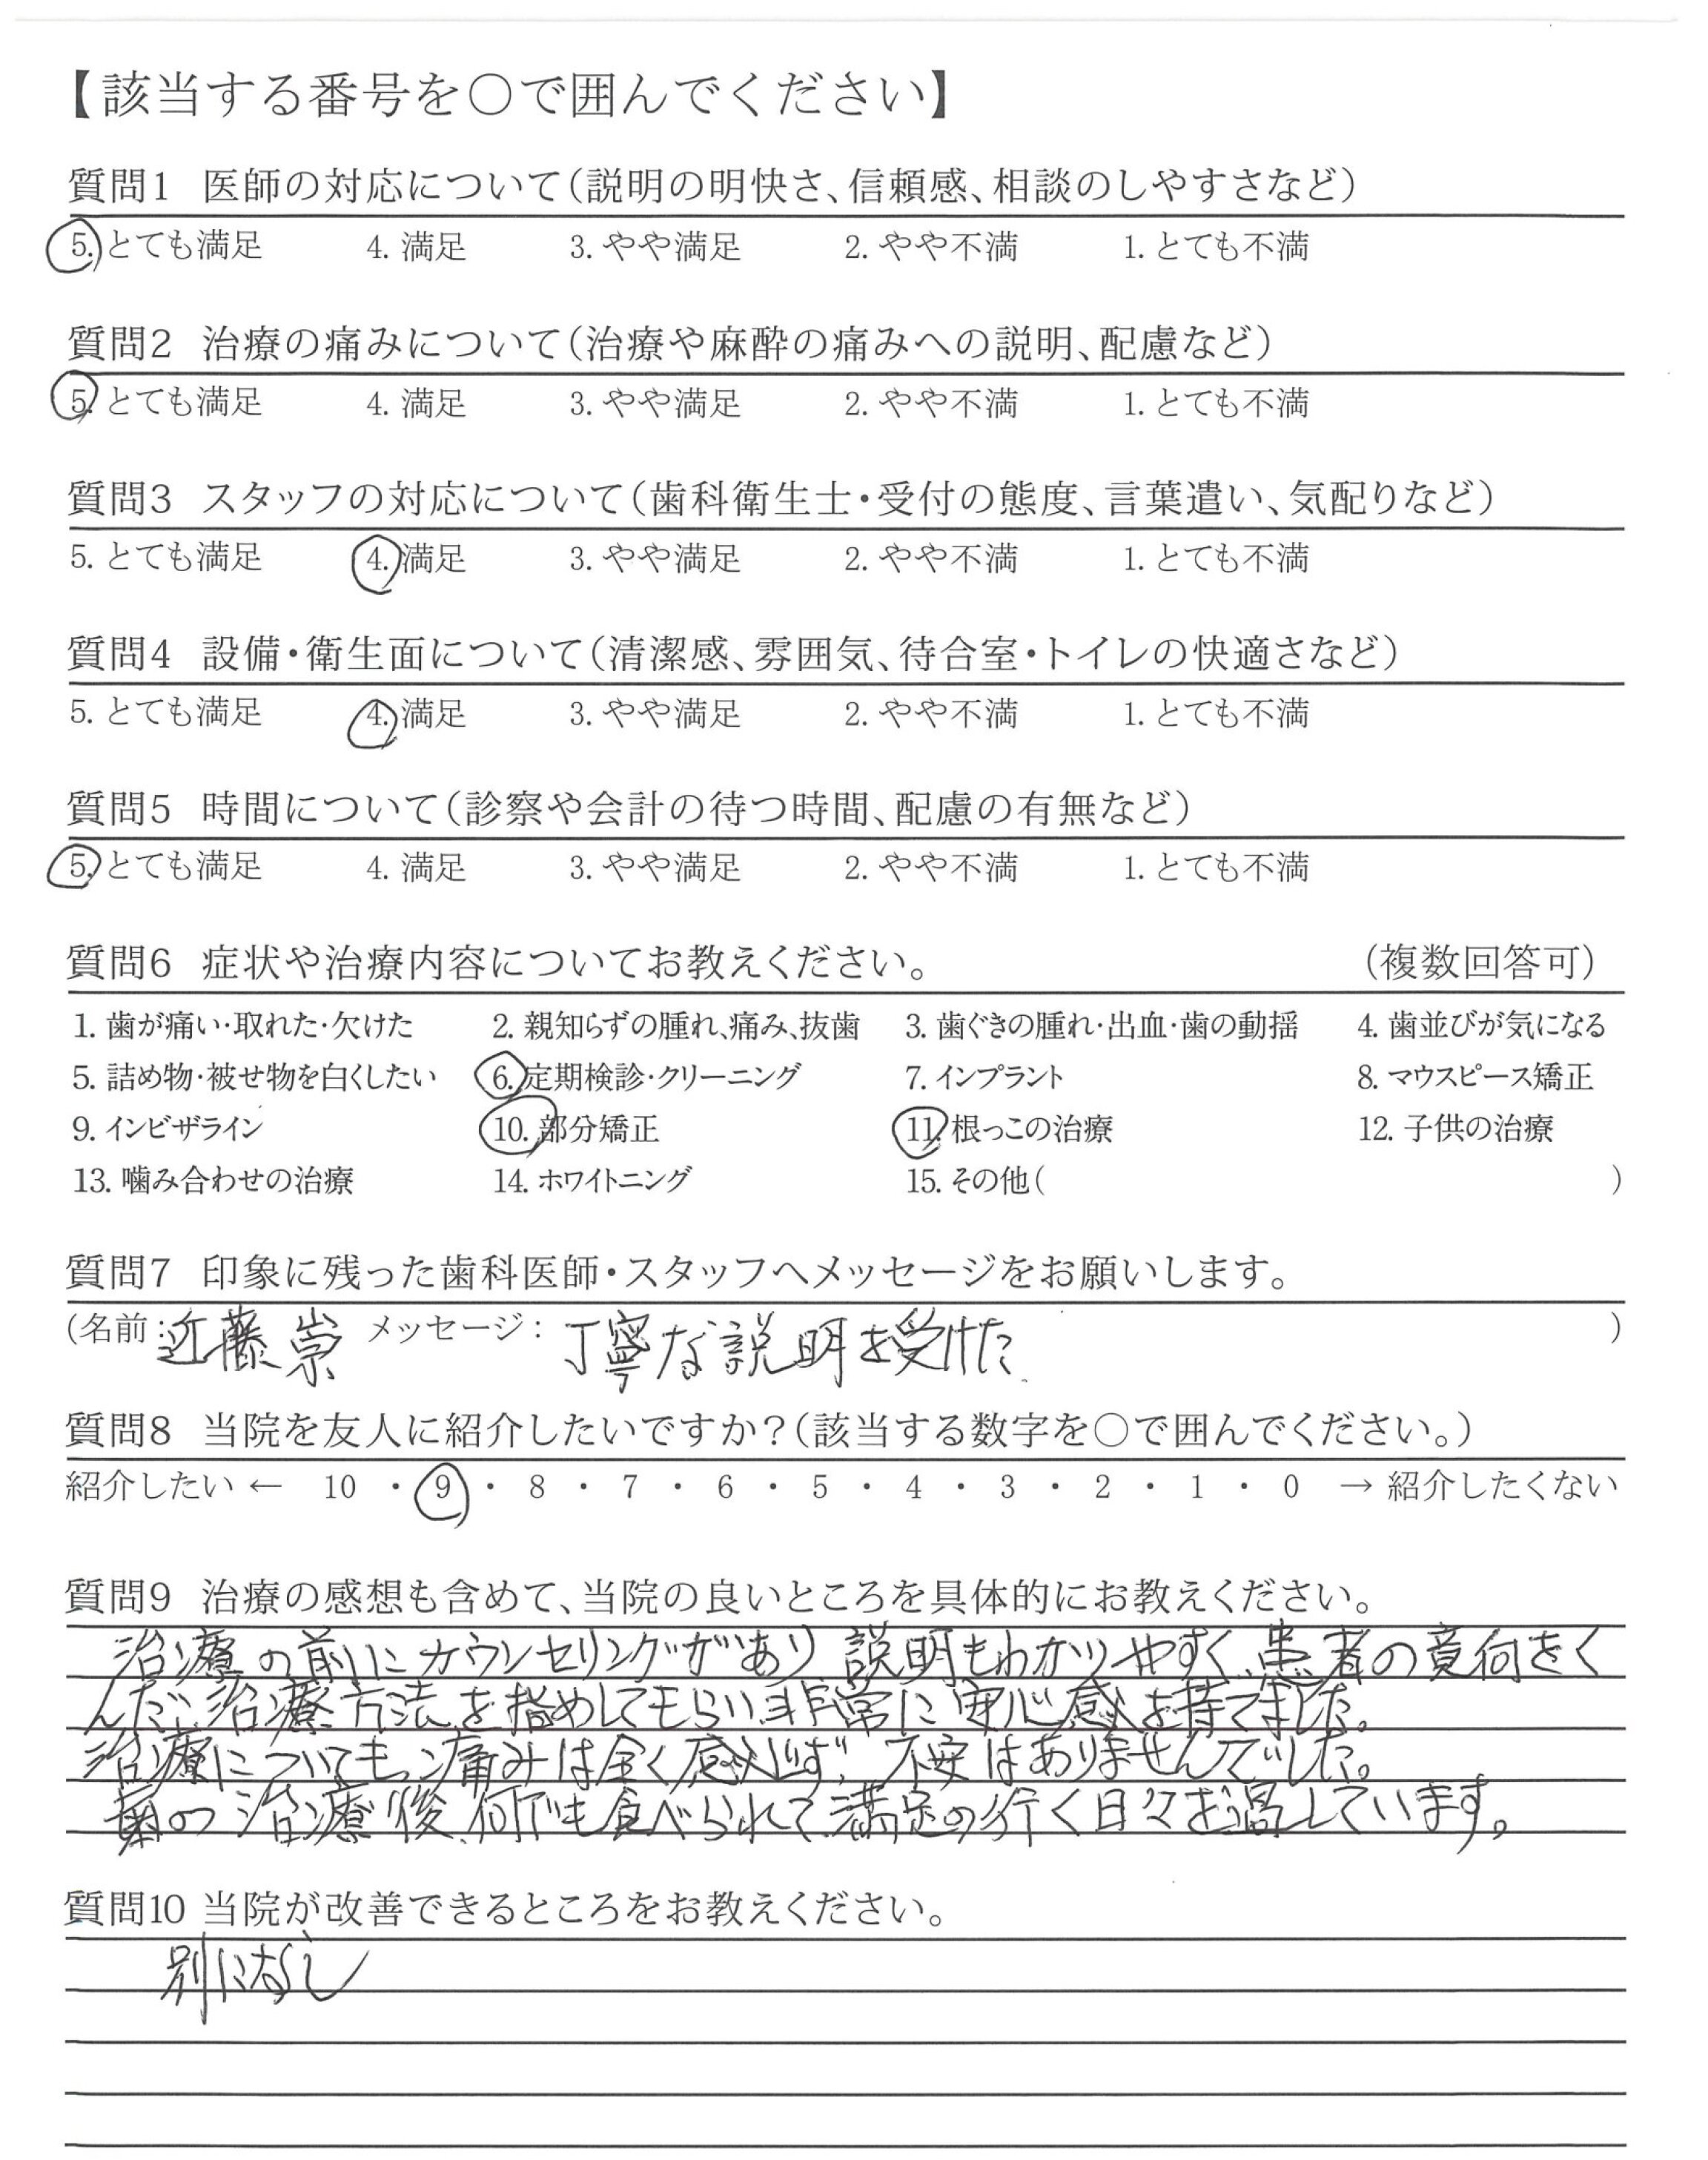 【該当する番号を○で囲んでください】
質問1 医師の対応について(説明の明快さ、信頼感、相談のしやすさなど)
5. とても満足 4. 満足 3. やや満足 2. やや不満 1. とても不満
質問2 治療の痛みについて(治療や麻酔の痛みへの説明、配慮など)
5. とても満足 4. 満足 3. やや満足 2. やや不満 1. とても不満
質問3 スタッフの対応について(歯科衛生士・受付の態度、言葉遣い、気配りなど)
5. とても満足 4. 満足 3. やや満足 2. やや不満 1. とても不満
質問4 設備・衛生面について(清潔感、雰囲気、待合室・トイレの快適さなど)
5. とても満足 4. 満足 3. やや満足 2. やや不満 1. とても不満
質問5 時間について(診察や会計の待つ時間、配慮の有無など)
5. とても満足 4. 満足 3. やや満足 2. やや不満 1. とても不満
質問6 症状や治療内容についてお教えください。 (複数回答可)
1. 歯が痛い・取れた・欠けた 2. 親知らずの腫れ、痛み、抜歯 3. 歯ぐきの腫れ・出血・歯の動揺 4. 歯並びが気になる
5. 詰め物・被せ物を白くしたい 6. 定期検診・クリーニング 7. インプラント 8. マウスピース矯正
9. インビザライン 10. 部分矯正 11. 根っこの治療 12. 子供の治療
13. 噛み合わせの治療 14. ホワイトニング 15. その他( )
質問7 印象に残った歯科医師・スタッフへメッセージをお願いします。
(名前:近藤崇 メッセージ: 丁寧な説明を受けた )
質問8 当院を友人に紹介したいですか?(該当する数字を○で囲んでください。)
紹介したい ← 10 ・ 9 ・ 8 ・ 7 ・ 6 ・ 5 ・ 4 ・ 3 ・ 2 ・ 1 ・ 0 → 紹介したくない
質問9 治療の感想も含めて、当院の良いところを具体的にお教えください。
治療の前にカウンセリングがあり説明もわかりやすく、患者の意向をく
んだ治療方法をしてもらい非常に安心感を持てました。
治療についても、痛みは全く感じず、不安はありませんでした。
歯の治療後、何でも食べられて満足の行く日々を過しています。
質問10 当院が改善できるところをお教えください。
別になし